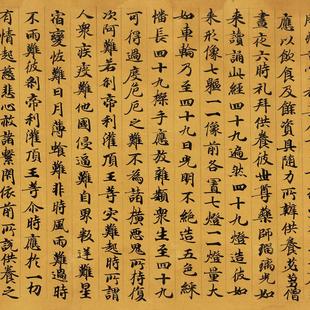 應以飲食及餘資具隨力所辦供養苾芻僧
晝夜六時礼拜供養彼世尊藥師瑠璃光如
來讀誦此經四十九遍然四十九燈造彼如
來形像七軀一一像前各置七燈一一燈量大
如車輪乃至四十九日光明不絕造五色綵
幡長四十九搩手應放雜類衆生至四十九
可得過度危厄之難不為諸橫惡鬼所持復
次阿難若剎帝利灌頂王等災難起時所謂
人衆疾疫難他國侵逼難自界叛逆難星
宿變恠難日月薄蝕難非時風雨難過時
不雨難彼剎帝利灌頂王等尒時應於一切
有情起慈悲心赦諸繫閉依前所說供養之